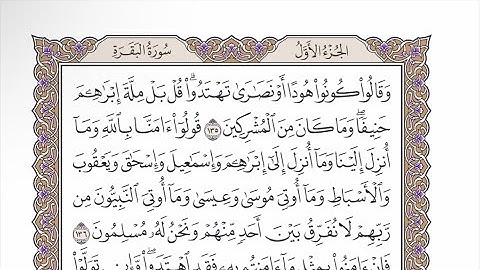 الجُزْءُ الأَوَّلُ
سُورَةُ البَقَرَةِ
وَقَالُوا۟ كُونُوا۟ هُودًا أَوْ نَصَـٰرَىٰ تَهْتَدُوا۟ ۗ قُلْ بَلْ مِلَّةَ إِبْرَٰهِـۧمَ
حَنِيفًا ۖ وَمَا كَانَ مِنَ ٱلْمُشْرِكِينَ ١٣٥ قُولُوٓا۟ ءَامَنَّا بِٱللَّهِ وَمَآ
أُنزِلَ إِلَيْنَا وَمَآ أُنزِلَ إِلَىٰٓ إِبْرَٰهِـۧمَ وَإِسْمَـٰعِيلَ وَإِسْحَـٰقَ وَيَعْقُوبَ
وَٱلْأَسْبَاطِ وَمَآ أُوتِىَ مُوسَىٰ وَعِيسَىٰ وَمَآ أُوتِىَ ٱلنَّبِيُّونَ مِن
رَّبِّهِمْ لَا نُفَرِّقُ بَيْنَ أَحَدٍ مِّنْهُمْ وَنَحْنُ لَهُۥ مُسْلِمُونَ ١٣٦
فَإِنْ ءَامَنُوا۟ بِمِثْلِ مَآ ءَامَنتُم بِهِۦ فَقَدِ ٱهْتَدَوا۟ ۖ وَّإِن تَوَلَّوْا۟